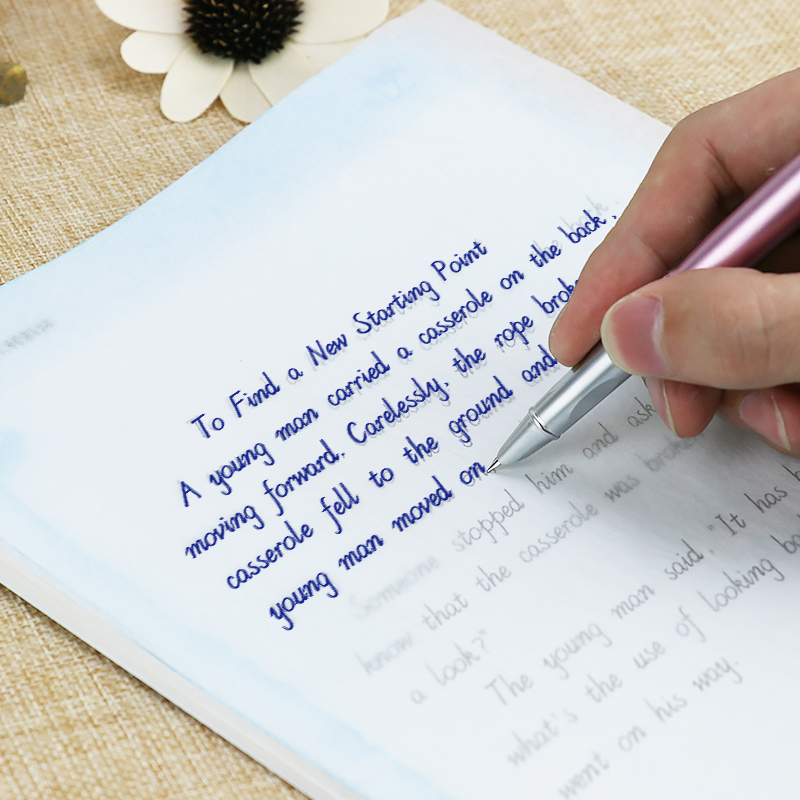 To Find a New Starting Point
A young man carried a casserole on the back,
moving forward. Carelessly, the rope broke
casserole fell to the ground and
young man moved on
Someone stopped him and ask
know that the casserole was broke
a look?"
The young man said, "It has b
what's the use of looking ba
went on his way.